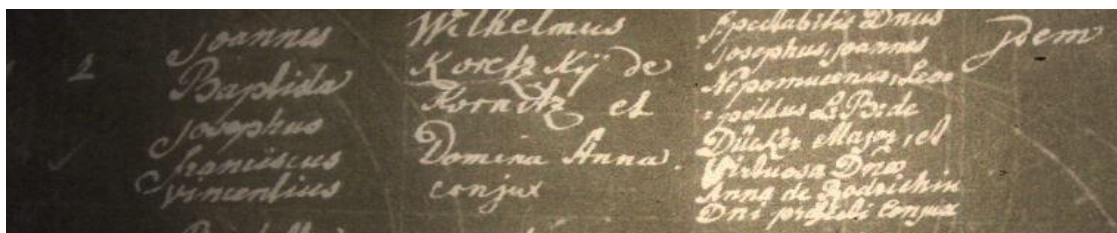 2
Joannes
Baptista
Josephus
Franciscus
Vincentius
Wilhelmus
Koretzkÿ de
Kornitz et
Domina Anna
conjux
Spectabilis Dnus
Josephus, Joannes
Nepomucenus, Leo
poldus L: B: de
Dücker Major, et
Virtuosa Dna
Anna de
Dni praefati Conjux
Idem